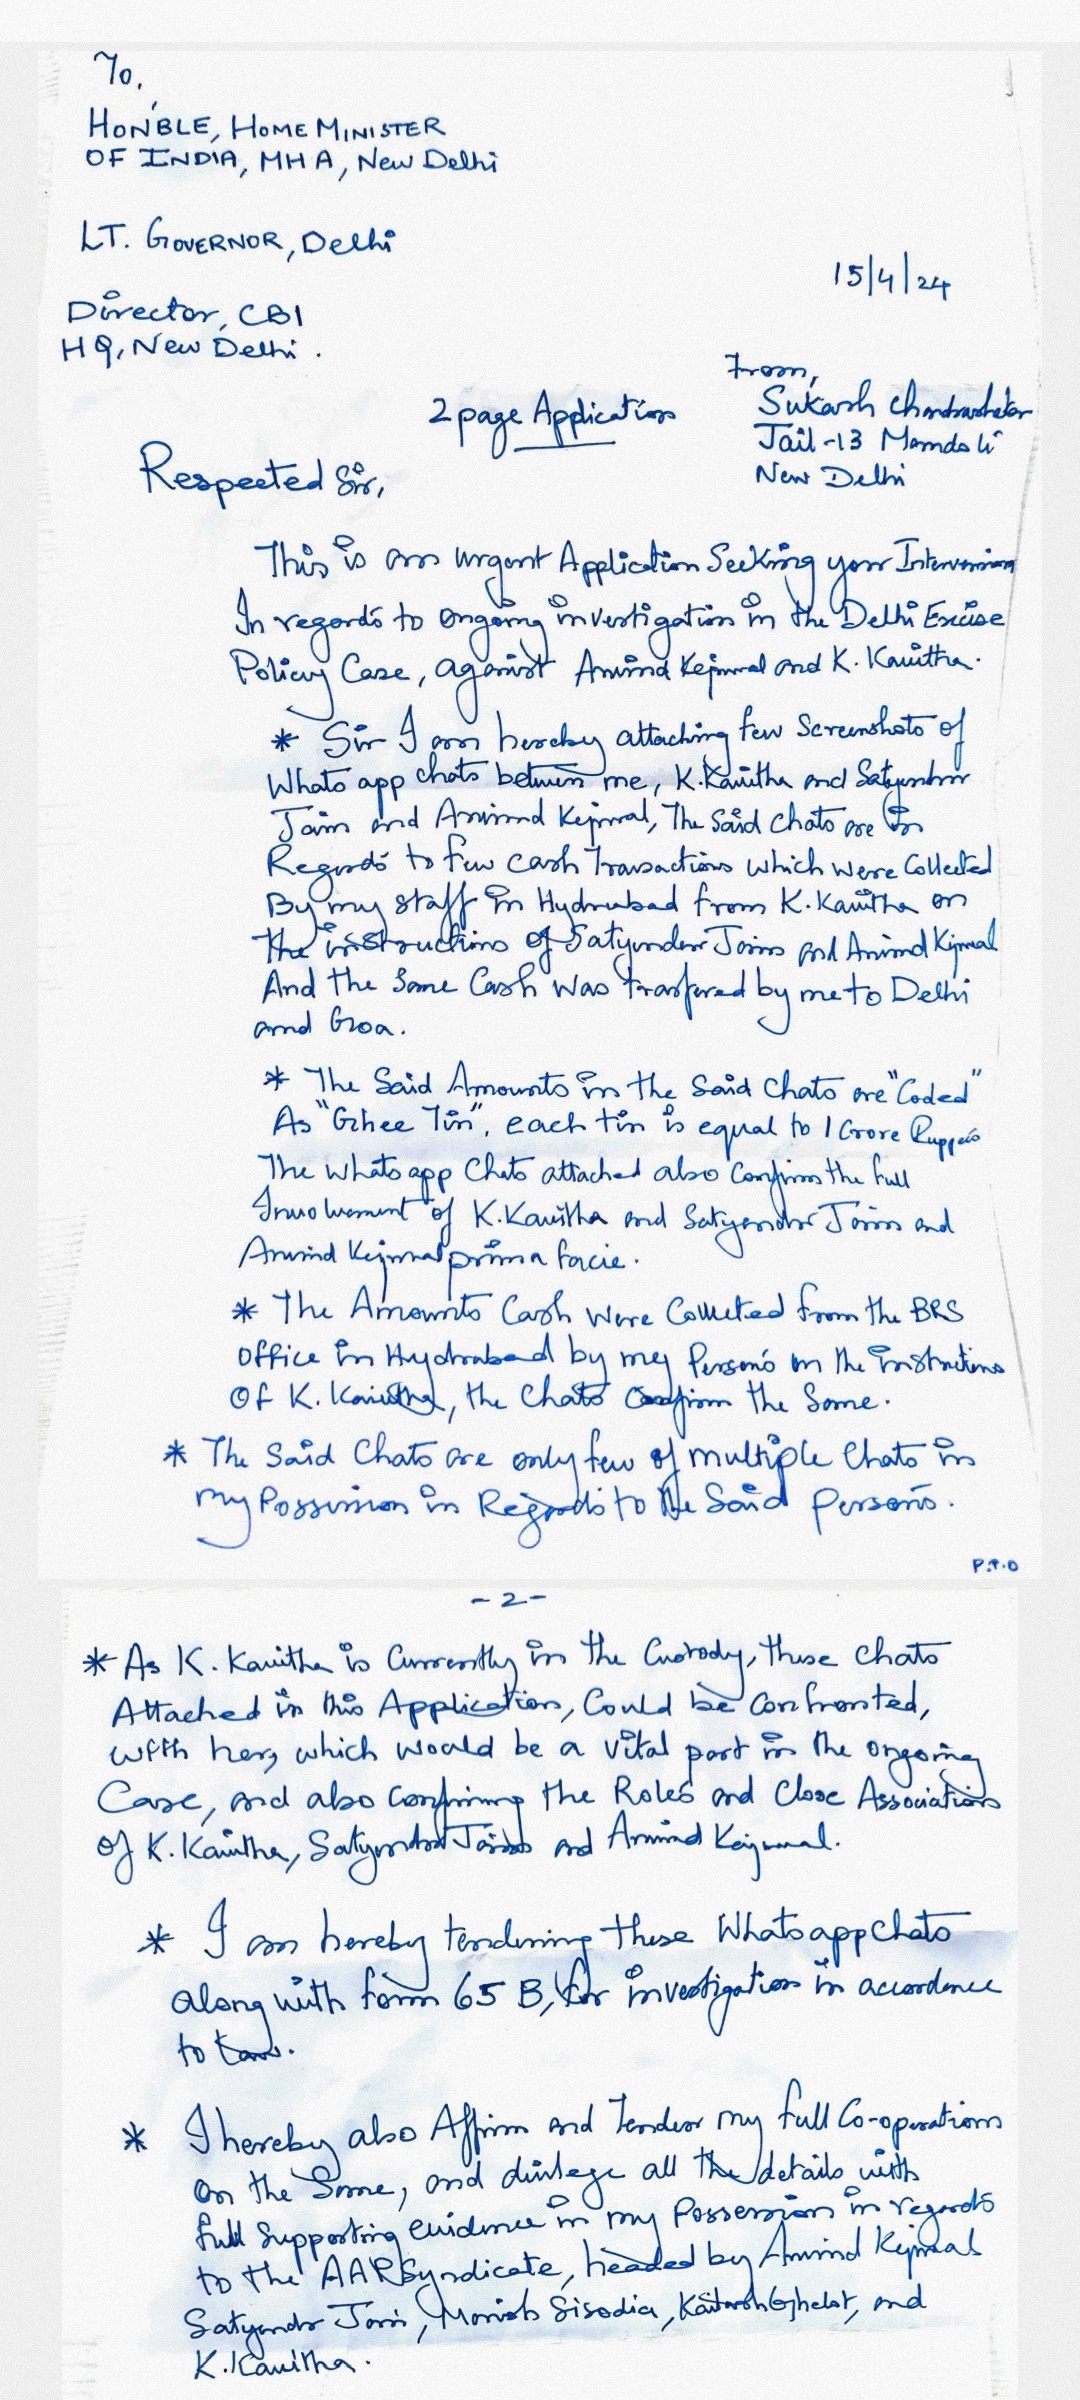 To,
HON'BLE, HOME MINISTER
OF INDIA, MHA, New Delhi
LT. GOVERNOR, Delhi
15/4/24
Director, CBI
HQ, New Delhi.
From,
Sukash Chandrashekar
Jail-13 Mandoli
New Delhi
2 page Application
Respected Sir,
This is an urgent Application Seeking your Intervention
In regards to ongoing investigation in the Delhi Excise
Policy Case, against Arvind Kejriwal and K. Kavitha.
* Sir I am hereby attaching few Screenshots of
Whats app chats between me, K. Kavitha and Satyendar
Jain and Arvind Kejriwal, The Said Chats are in
Regards to few cash Transactions which were Collected
By my staff in Hydrabad from K. Kavitha on
the instructions of Satyender Jain and Arvind Kejriwal
And the Same Cash was transfered by me to Delhi
and Goa.
* The Said Amounts in the Said Chats are "Coded"
As "Ghee Tin", each tin is equal to 1 Crore Ruppes
The whats app Chats attached also Confirm the full
Involvement of K. Kavitha and Satyendar Jain and
Arvind Kejriwal prima facie.
* The Amounts Cash were Collected from the BRS
Office in Hydrabad by my Persons on the instructions
Of K. Kavitha, the Chats Confirm the Same.
* The Said Chats are only few of multiple Chats in
my Possession in Regards to the Said persons.
P.T.O
- 2 -
* As K. Kavitha is Currently in the Custody, these Chats
Attached in this Application, Could be Confronted,
with her, which would be a vital part in the ongoing
Case, and also Confirming the Roles and Close Association
of K. Kavitha, Satyendar Jain and Arvind Kejriwal.
* I am hereby tendering these Whats app Chats
along with form 65 B, for investigation in accordence
to Law.
* I hereby also Affirm and Tender my full Co-operation
on the Same, and divlege all the details with
full Supporting evidence in my Possession in regards
to the AAP Syndicate, headed by Arvind Kejriwal
Satyendr Jain, Manish Sisodia, Kailash Ghelot, and
K. Kavitha.